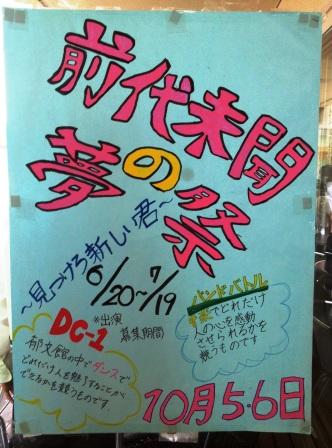 前代未聞
夢の祭
~見つけろ新しい君~
6/20~7/19
*出演
募集期間
バンドバトル
音楽でどれだけ
人の心を感動
させられるかを
競うものです
DC-1
郁文館の中でダンスで
どれだけ人を魅了することが
できるかを競うものです。
10月5・6日